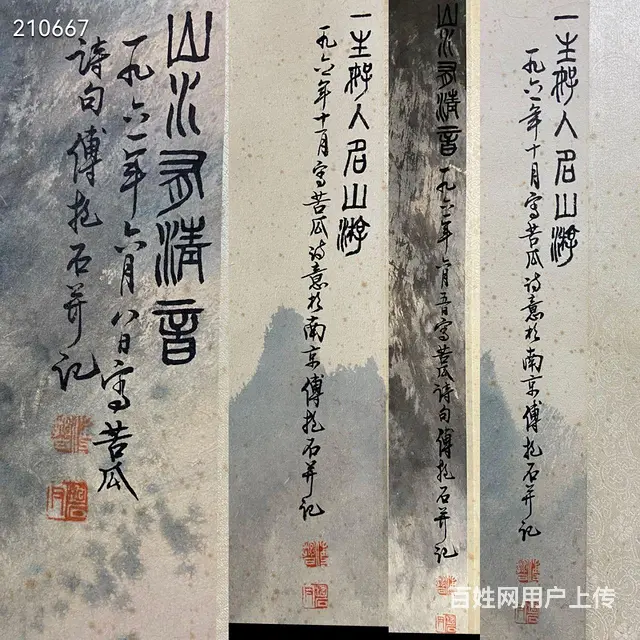 210667
山水有清音
一九六一年六月八日写苦瓜
诗句傅抱石并记
一生好入名山游
一九六一年十一月写苦瓜诗意於南京傅抱石并记
山水有清音
一九六一年六月五日写苦瓜诗句傅抱石并记
一生好入名山游
一九六一年十月写苦瓜诗意於南京傅抱石并记
百姓网用户上传